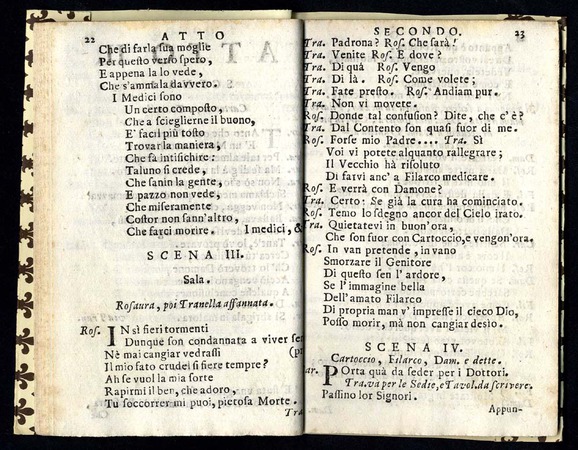 22 ATTO
Che di farla sua moglie
Per questo verso spero,
E appena la lo vede,
Che s'ammala davvero.
I Medici sono
Un certo composto,
Che a scieglierne il buono,
E' facil più tosto
Trovar la maniera,
Che fà intisichire:
Taluno si crede,
Che sanin la gente,
E pazzo non vede,
Che miseramente
Costor non sann'altro,
Che farci morire. I medici, &
SCENA III.
Sala.
Rosaura, poi Tranella affannata.
Ros. IN sì fieri tormenti
Dunque son condannata a viver sem
Nè mai cangiar vedrassi (pr
Il mio fato crudel sì fiere tempre?
Ah se vuol la mia sorte
Rapirmi il ben, che adoro,
Tu soccorrer mi puoi, pietosa Morte.
Tra
SECONDO. 23
Tra. Padrona? Ros. Che sarà!
Tra. Venite Ros. E dove?
Tra. Di quà Ros. Vengo
Tra. Di là. Ros. Come volete;
Tra. Fate presto. Ros. Andiam pur.
Tra. Non vi movete.
Ros. Donde tal confusion? Dite, che c'è?
Tra. Dal Contento son quasi fuor di me.
Ros. Forse mio Padre.... Tra. Sì
Voi vi potete alquanto rallegrare;
Il Vecchio hà risoluto
Di farvi anc' a Filarco medicare.
Ros. E verrà con Damone?
Tra. Certo: Se già la cura ha cominciato.
Ros. Temo lo sdegno ancor del Cielo irato.
Tra. Quietatevi in buon'ora,
Che son fuor con Cartoccio, e vengon'ora.
Ros. In van pretende, in vano
Smorzare il Genitore
Di questo sen l' ardore,
Se l'immagine bella
Dell'amato Filarco
Di propria man v' impresse il cieco Dio,
Posso morir, mà non cangiar desìo.
SCENA IV.
Cartoccio, Filarco, Dam. e dette.
ar. POrta quà da seder per i Dottori.
Tra. va per le Sedie, e Tavol. da scrivere.
Passino lor Signori.
Appun-